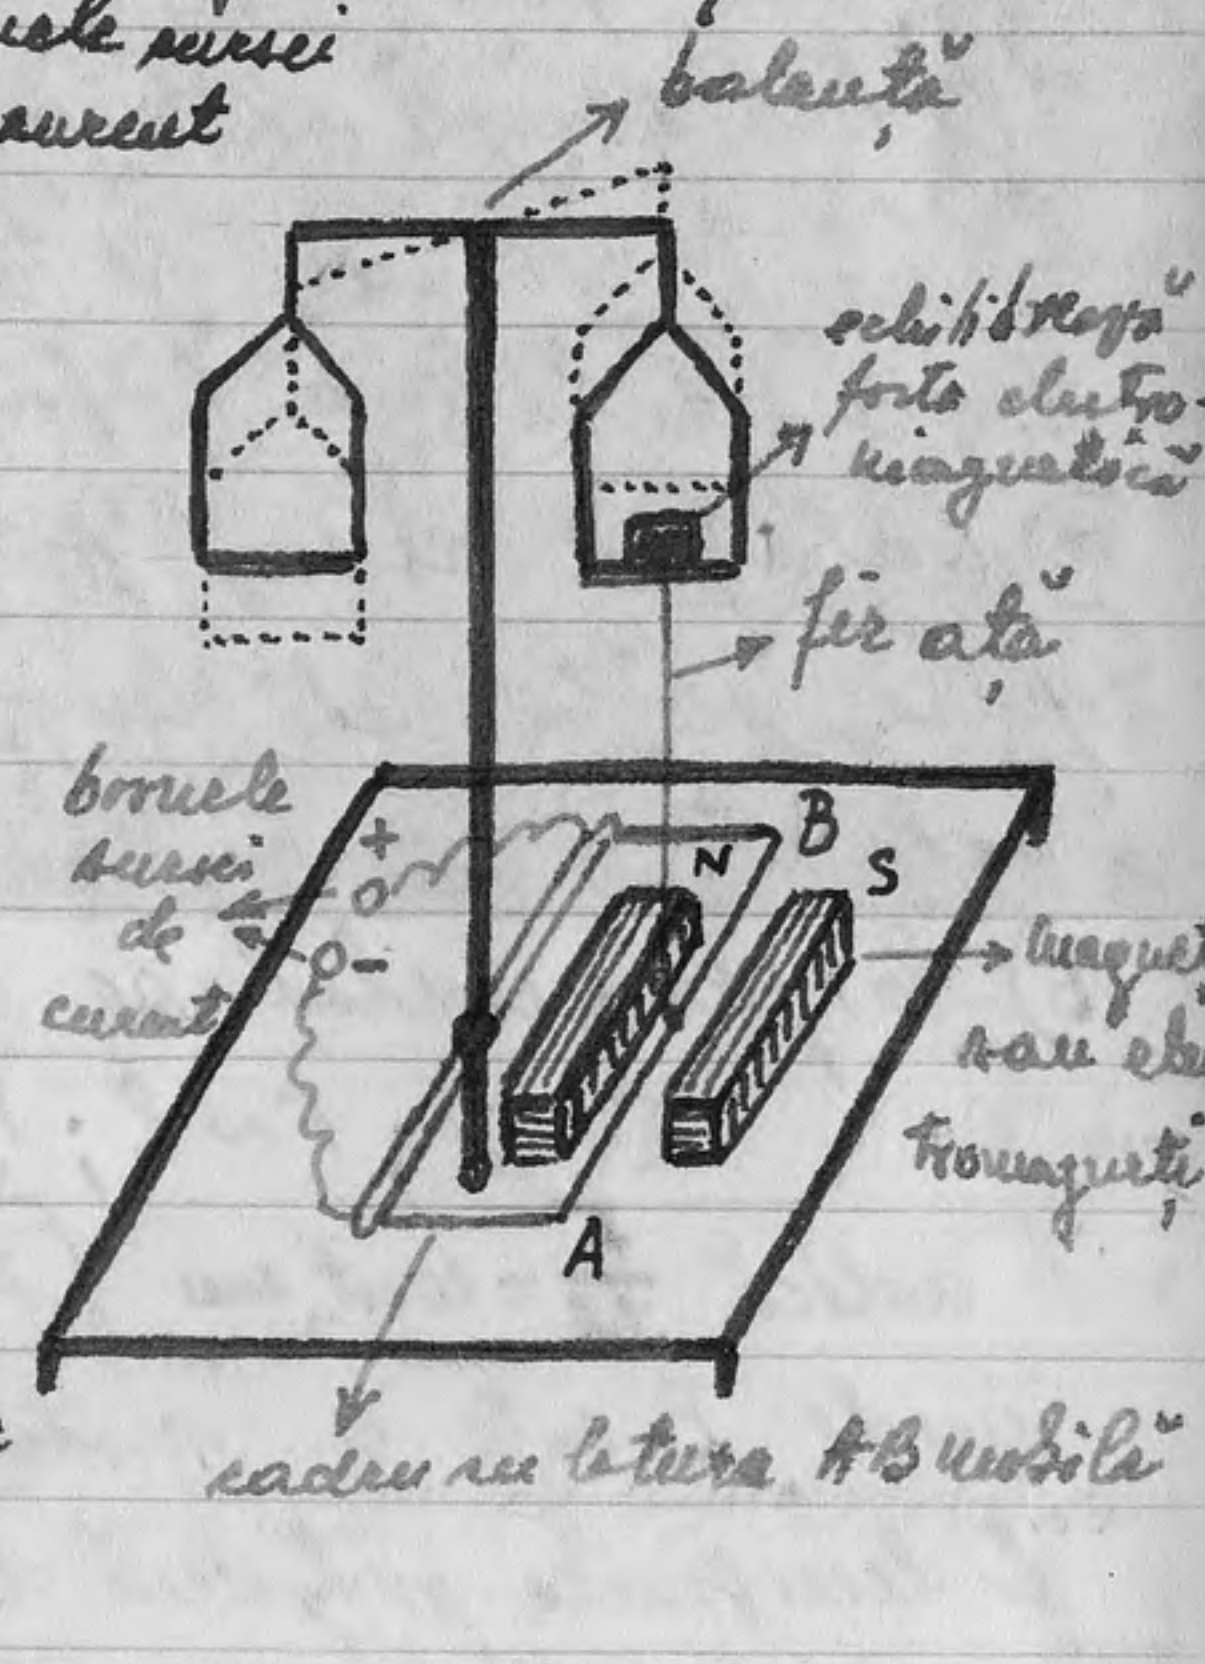 sursei
curent
balanță
echilibrează
forța electro-
magnetică
fir ață
bornele
sursei
de
curent
+
-
N
B
S
A
magneți
sau elec
tromagneți
cadru cu latura AB mobilă